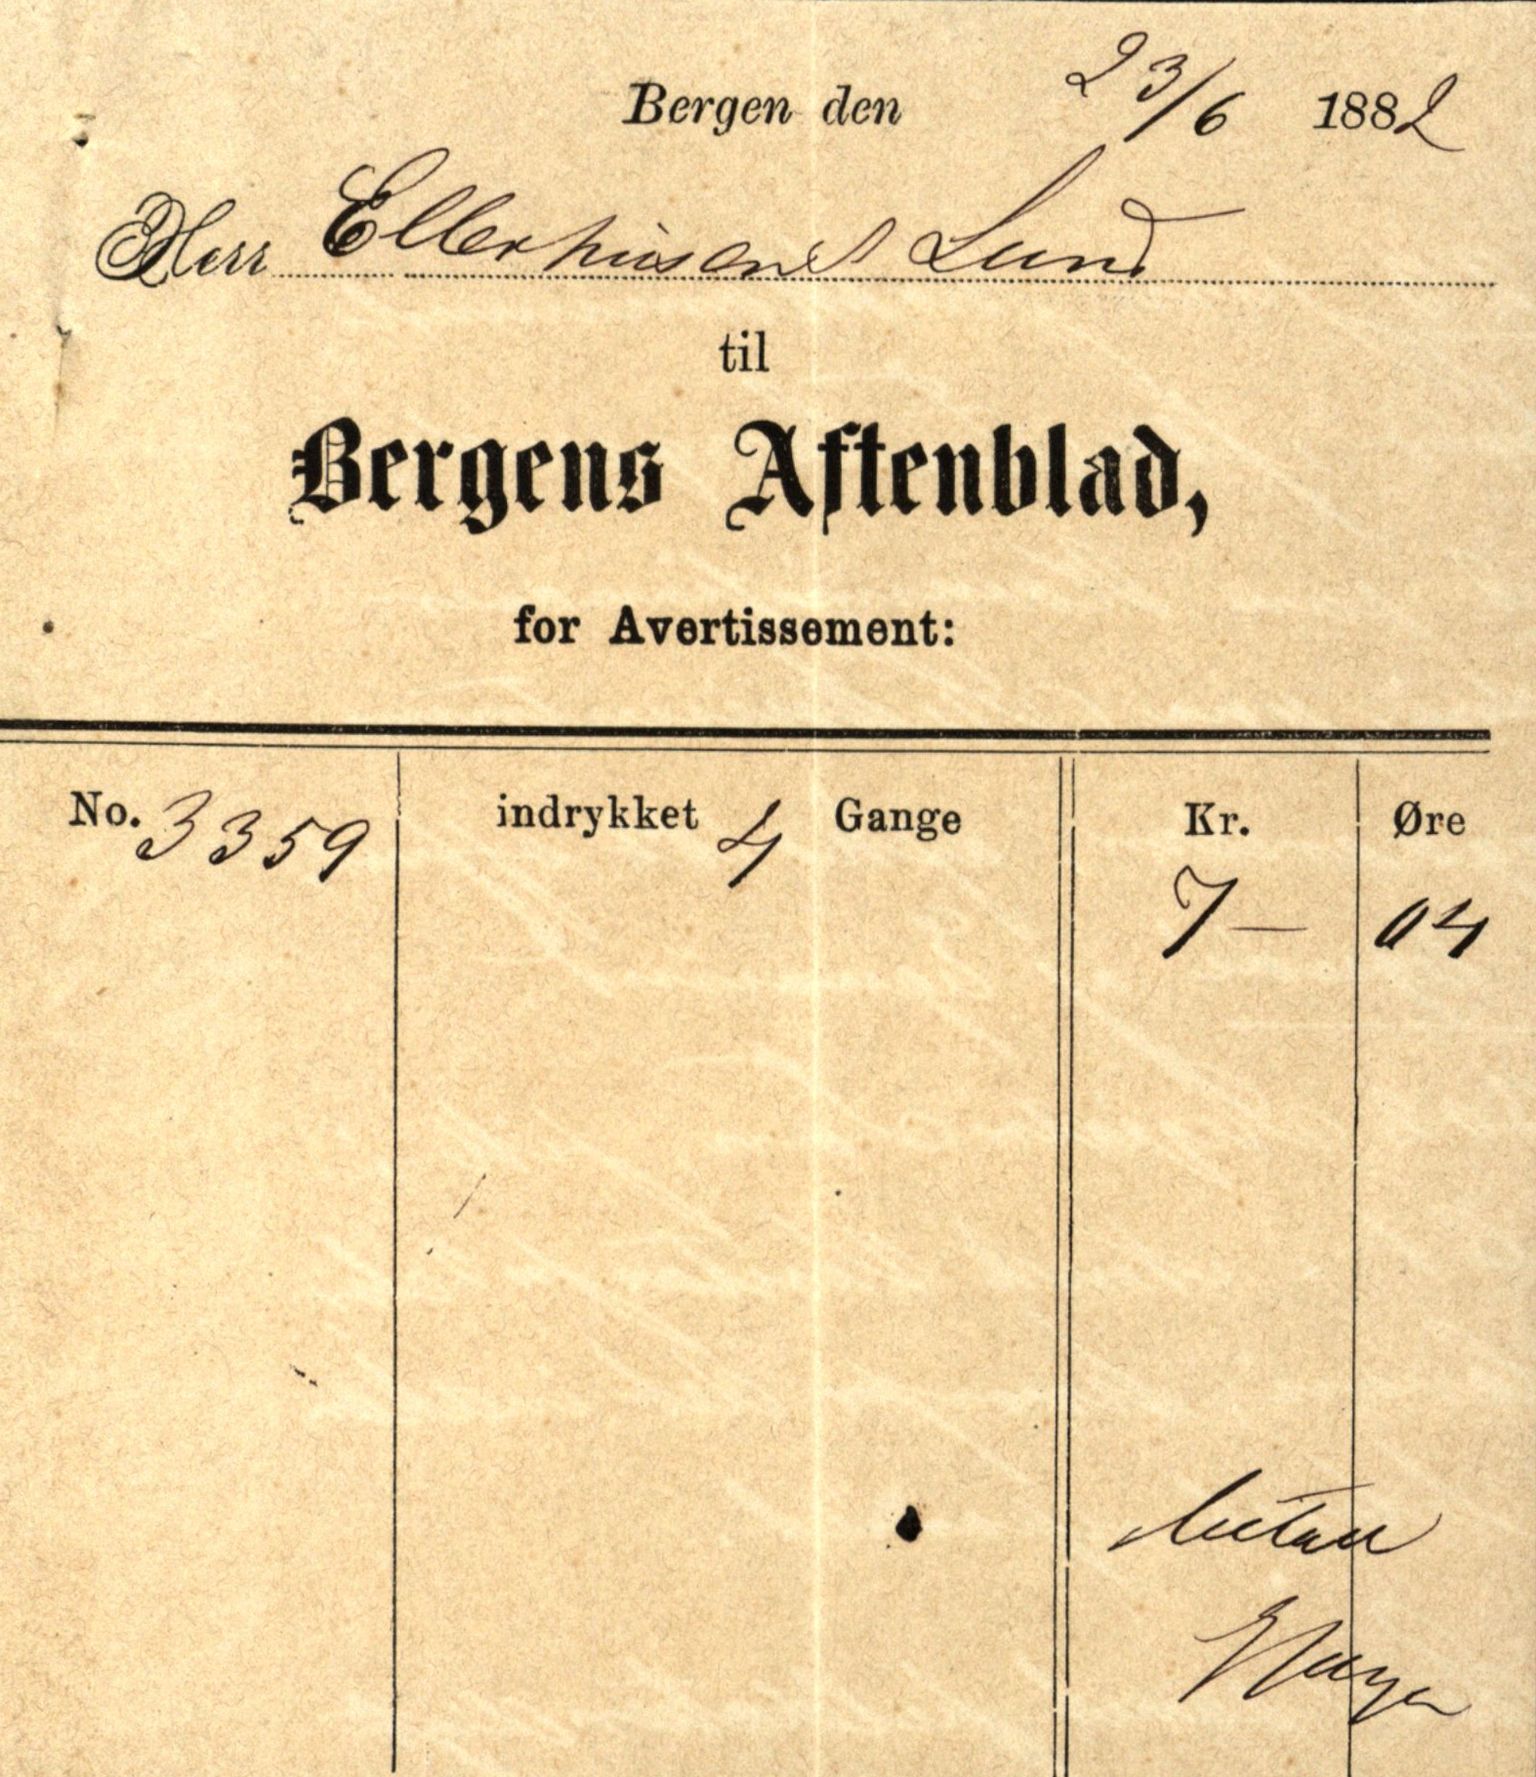 Bergen den 23/6 1882
Herr Ellerhusen & Lund
til
Bergens Aftenblad,
for Avertissement:
No. 3359 indrykket 4 Gange Kr. Øre
7 — 04
betalt